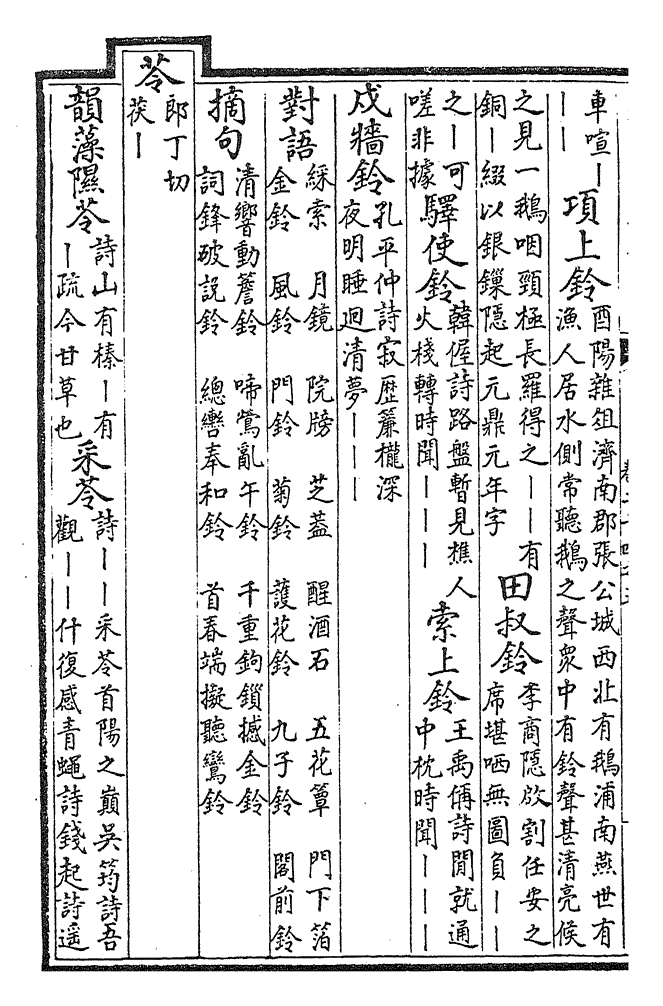 車喧｜
｜｜
項上鈴
酉陽雜俎濟南郡張公城西北有鵝浦南燕世有
漁人居水側常聽鵝之聲衆中有鈴聲甚清亮候
之見一鵝咽頸極長羅得之｜｜有
銅｜綴以銀鏁隠起元鼎元年字
田叔鈴
李商隠啟割任安之
席堪哂無圖負｜｜
之｜可
嗟非據
驛使鈴
韓偓詩路盤暫見樵人
火棧轉時聞｜｜｜
索上鈴
王禹偁詩閒就通
中枕時聞｜｜｜
戍牆鈴
孔平仲詩寂歴簾櫳深
夜明睡迴清夢｜｜｜
對語
綵索 月鏡 院牓 芝蓋 醒酒石 五花簟 門下箔
金鈴 風鈴 門鈴 菊鈴 護花鈴 九子鈴 閣前鈴
摘句
清響動簷鈴 啼鶯亂午鈴 千重鉤鎖撼金鈴
詞鋒破説鈴 總轡奉和鈴 首春端擬聽鸞鈴
苓
郎丁切
茯｜
韻藻隰苓
詩山有榛｜有
｜疏今甘草也
采苓
詩｜｜采苓首陽之巔吳筠詩吾
觀｜｜什復感青蠅詩錢起詩遥